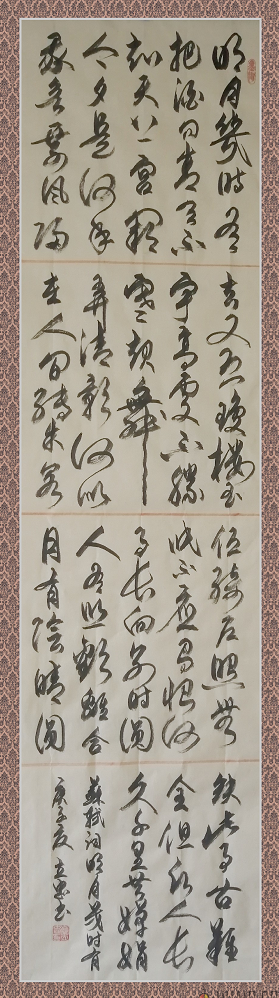 明月幾時有
把酒问青天不
知天上宫闕
今夕是何年
我欲乘風歸
去又恐瓊樓玉
宇高處不勝
寒起舞
弄清影何似
在人间轉朱閣
低綺户照無
眠不應有恨何
事长向别时圆
人有悲歡離合
月有陰晴圆
缺此事古難
全但願人长
久千里共婵娟
蘇軾词明月幾时有
庚子夏